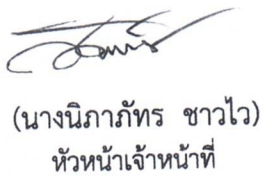 (นางนิภาภัทร ชาวไว)
หัวหน้าเจ้าหน้าที่